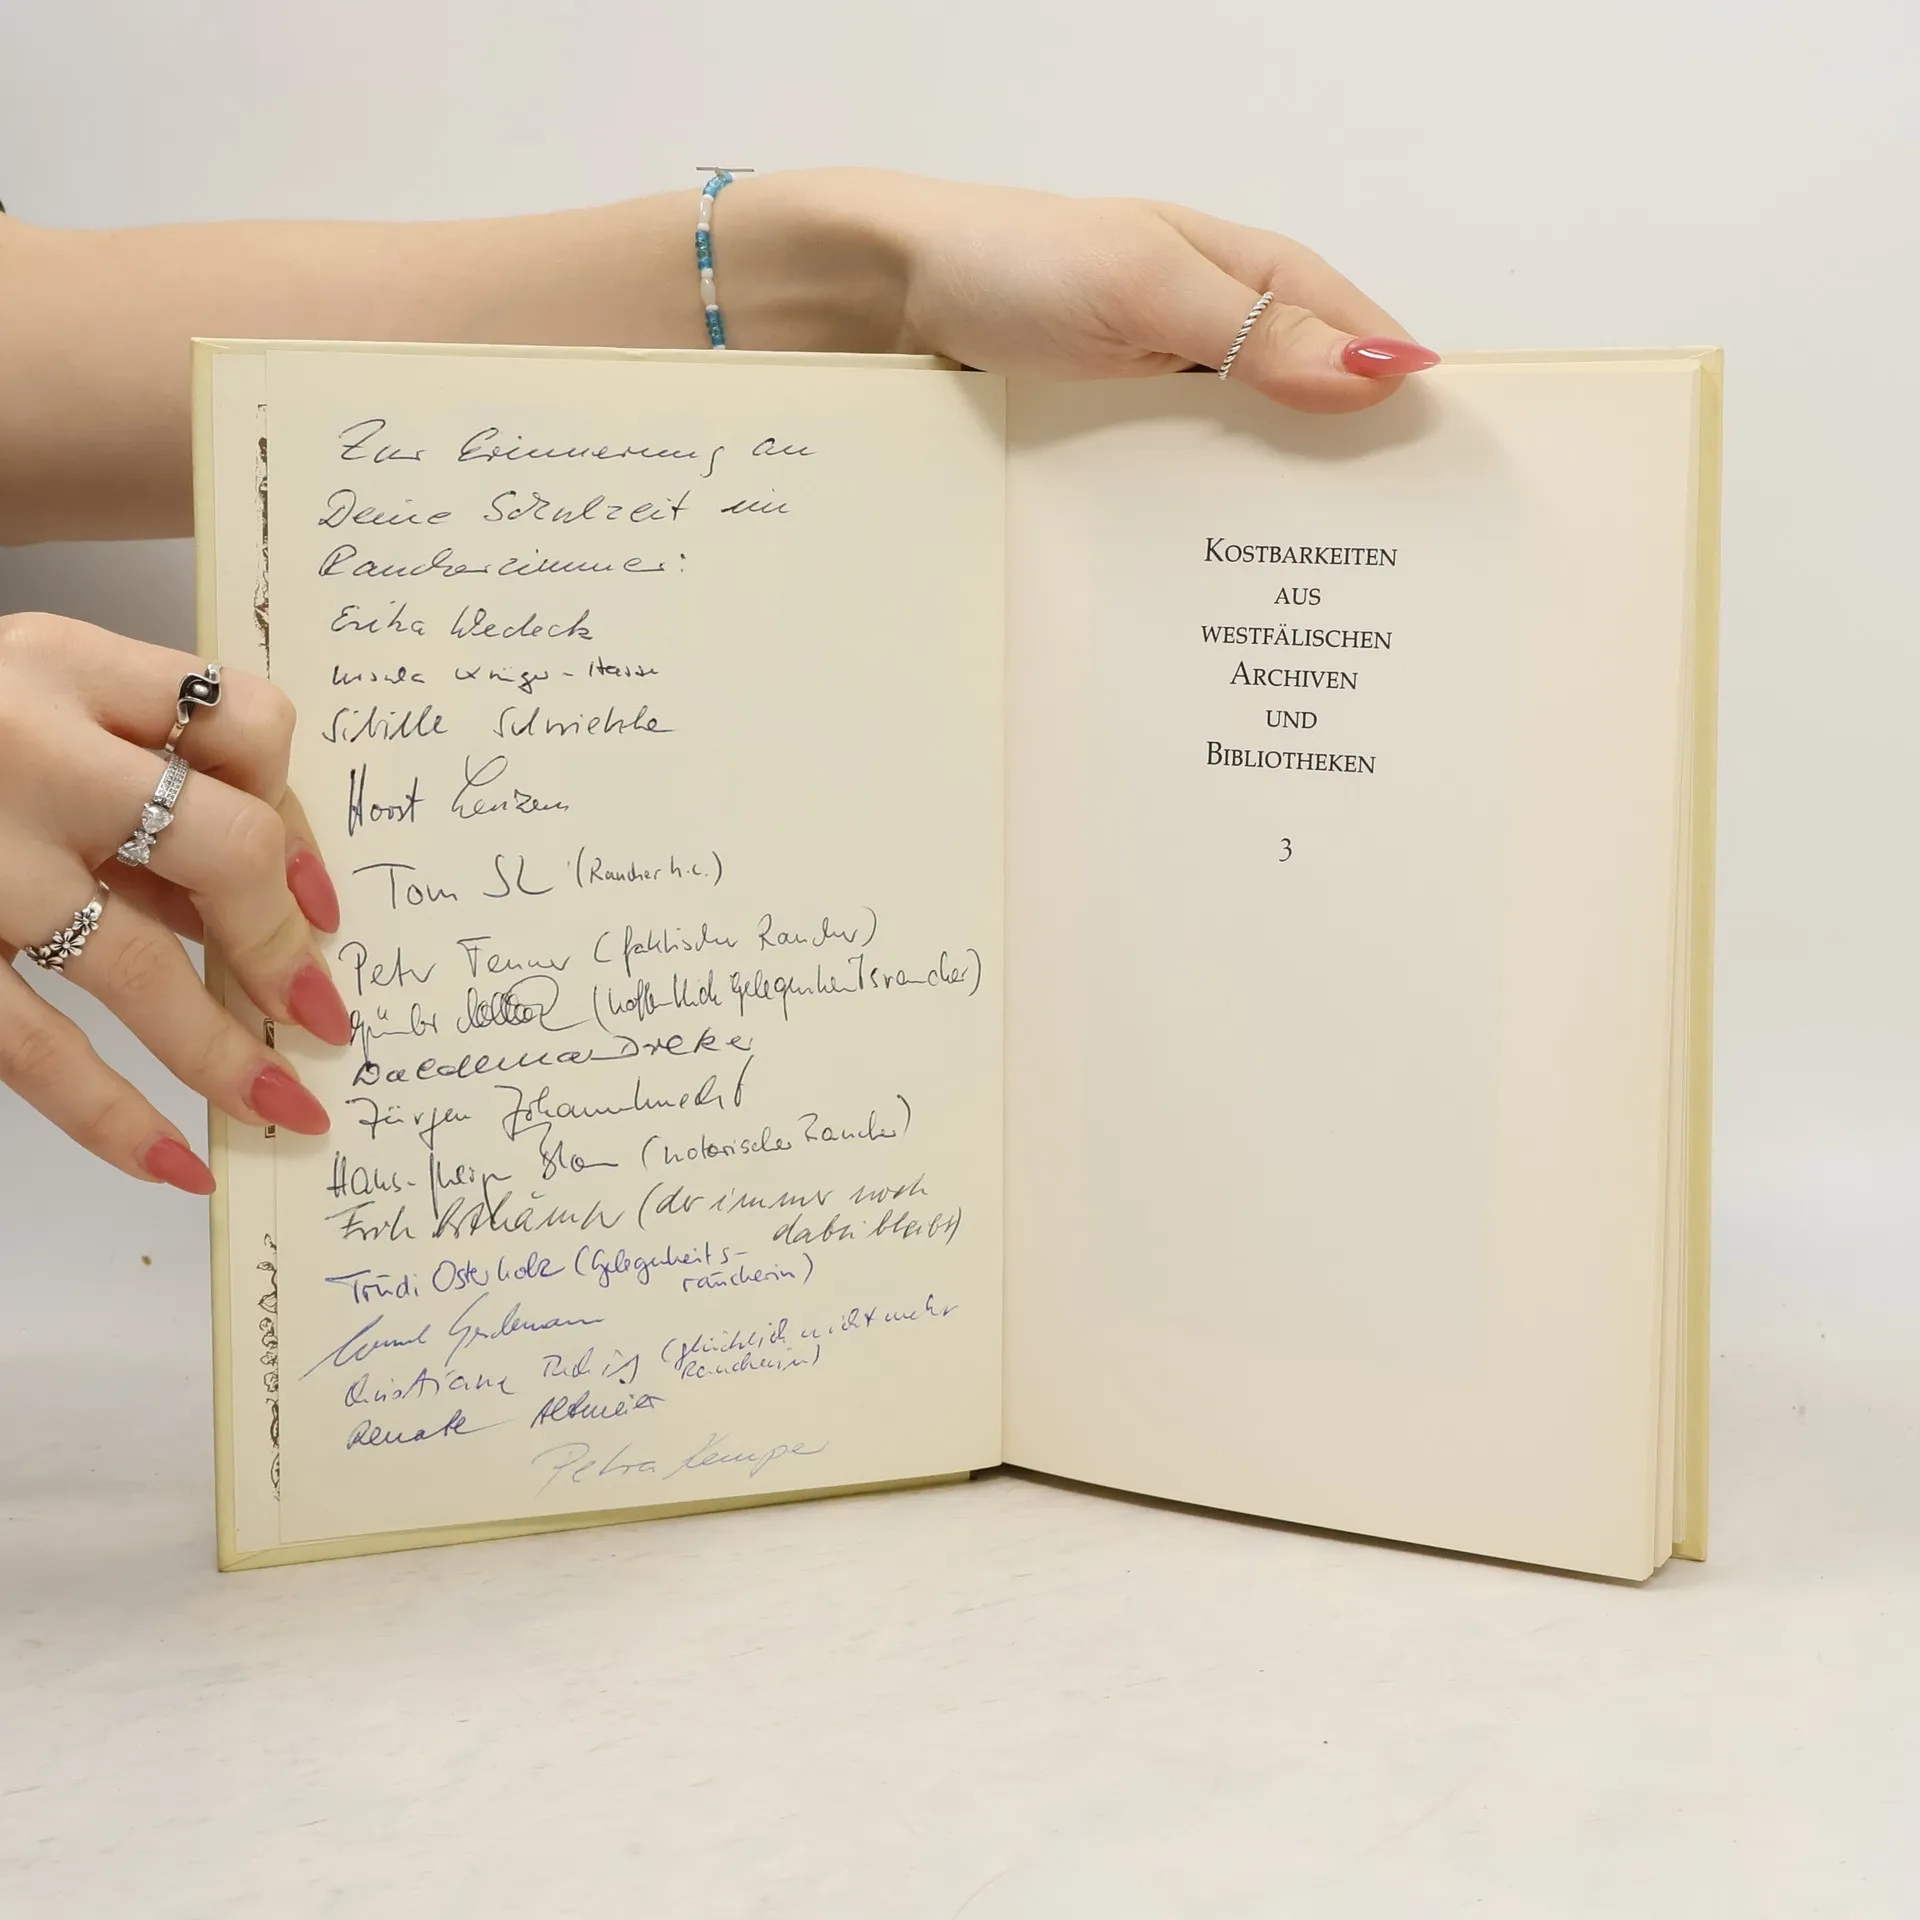 Zur Erinnerung an
Deine Schulzeit im
Raucherzimmer:
Erika Wedeck
Ursula Krüger-Hasse
Sibille
Horst Lenzen
Tom (Raucher h.c.)
Peter Fenner (faktischer Raucher)
Günter (hoffentlich Gelegenheitsraucher)
Dreker
Jürgen Johannknecht
Hans- (notorischer Raucher)
Erich (der immer noch
dabei bleibt)
Trudi Osterholz (Gelegenheits-
raucherin)
Gerdemann
Christiane (glücklich nicht mehr
Raucherin)
Renate Altmeier
Petra Kempe
KOSTBARKEITEN
AUS
WESTFÄLISCHEN
ARCHIVEN
UND
BIBLIOTHEKEN
3